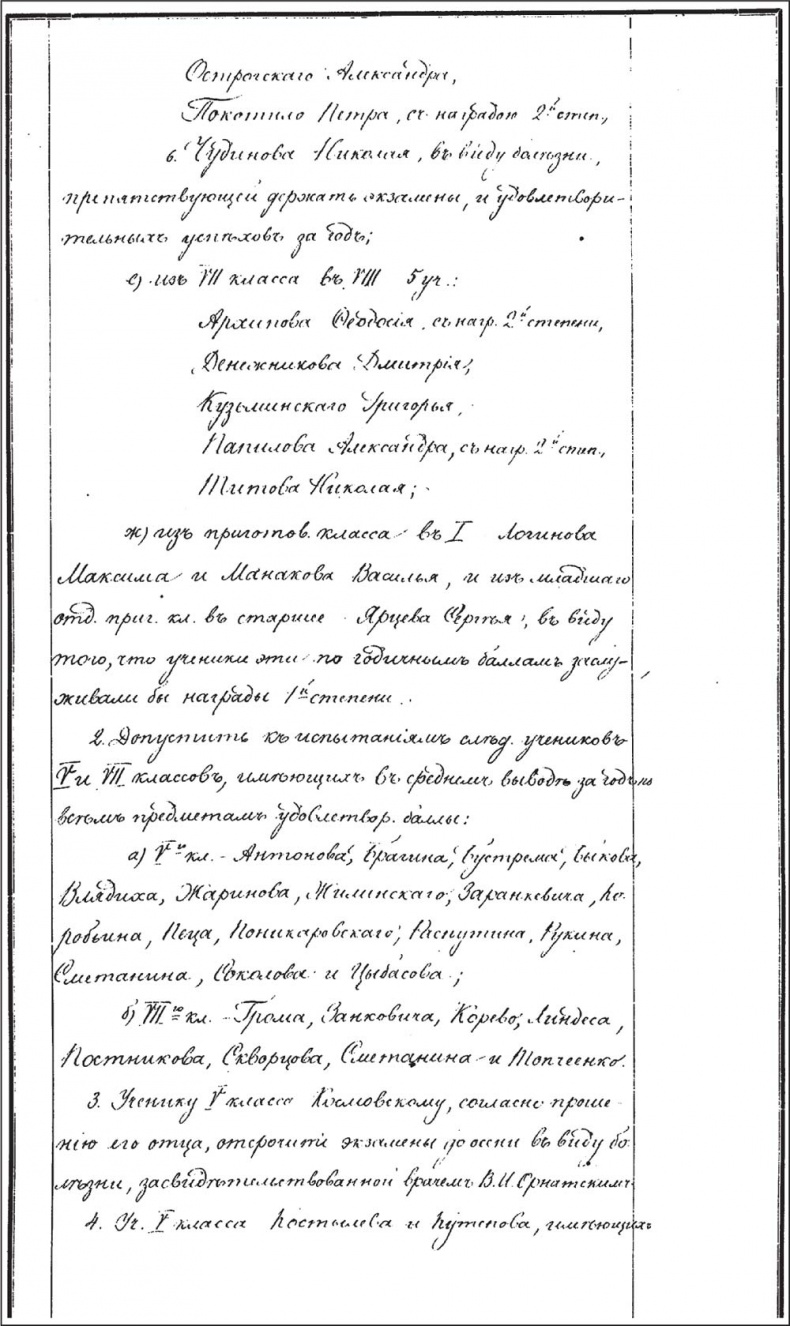 Острогскаго Александра,
Покотило Петра, съ наградою 2й степ.,
6. Чудинова Николая, въ виду болѣзни,
препятствующей держать экзамены, и удовлетвори-
тельныхъ успѣховъ за годъ;
е) изъ VII класса въ VIII 5 уч.:
Архипова Ѳеодосія, съ нагр. 2й степени,
Денежникова Дмитрія,
Кузьминскаго Григорья,
Папилова Александра, съ нагр. 2й степ.,
Титова Николая;
ж) изъ приготов. класса въ I Логинова
Максима и Манакова Василья, и изъ младшаго
отд. приг. кл. въ старшее Ярцева Сергѣя, въ виду
того, что ученики эти по годичнымъ балламъ заслу-
живали бы награды 1й степени.
2. Допустить къ испытаніямъ слѣд. учениковъ
V и VII классовъ, имѣющихъ въ среднемъ выводѣ за годъ по
всѣмъ предметамъ удовлетвор. баллы:
а) Vго кл. - Антонова, Брагина, Бустрема, Быкова,
Влядиха, Жаринова, Жилинскаго, Заранкевича, Ко-
робьина, Пеца, Поникаровскаго, Распутина, Рукина,
Сметанина, Соколова и Цыбасова;
б) VIIго кл. - Грома, Занковича, Корево, Линдеса,
Постникова, Скворцова, Сметанина и Топчеенко.
3. Ученику V класса Козловскому, согласно проше-
нію его отца, отсрочить экзамены до осени въ виду бо-
лѣзни, засвидѣтельствованной врачемъ В. И. Орнатскимъ
4. Уч. V класса Костылева и Кутепова, имѣющихъ